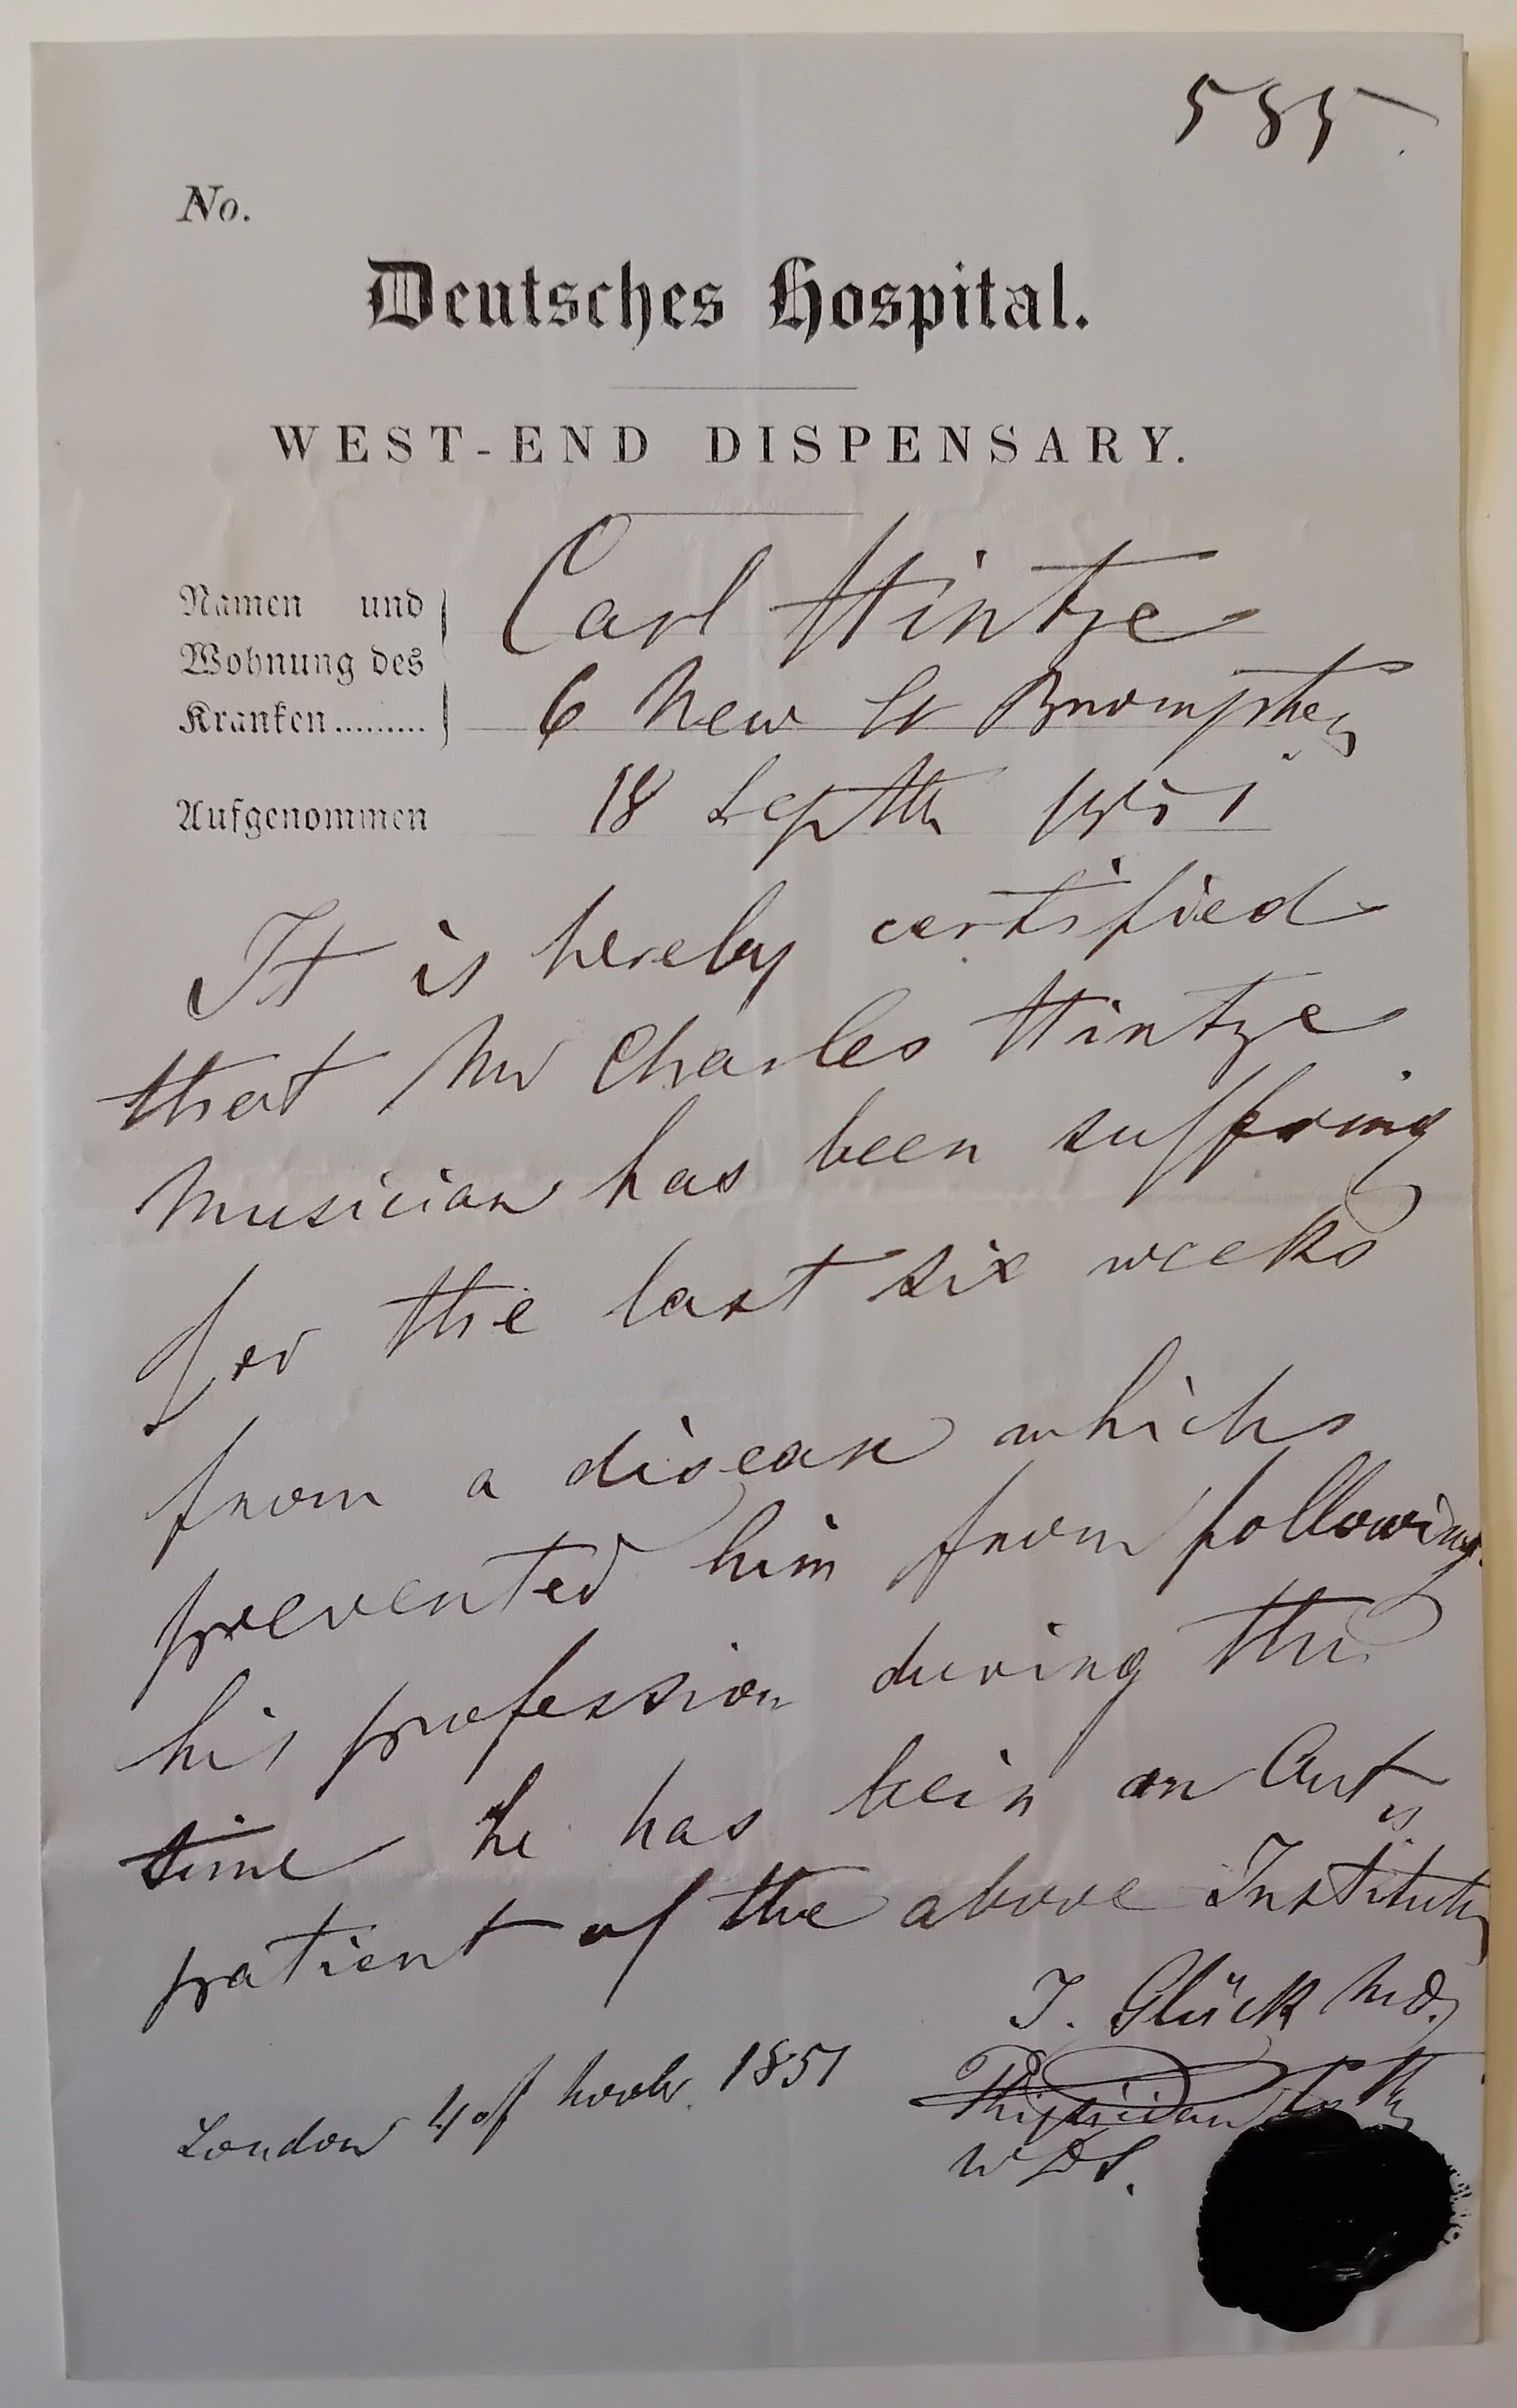 585
No.
Deutsches Hospital.
WEST-END DISPENSARY.
Namen und
Wohnung des
Kranken.........
Carl Hintze
6 New St Brompton
Aufgenommen 18 Septbr 1851
It is hereby certified
that Mr Charles Hintze
Musician has been suffring
for the last six weeks
from a disease which
prevented him from following
his profession during this
time he has been an Out
patient of the above Institution
J. Glück MD.
Physician to the
London 4 of Novbr. 1851
W D S.